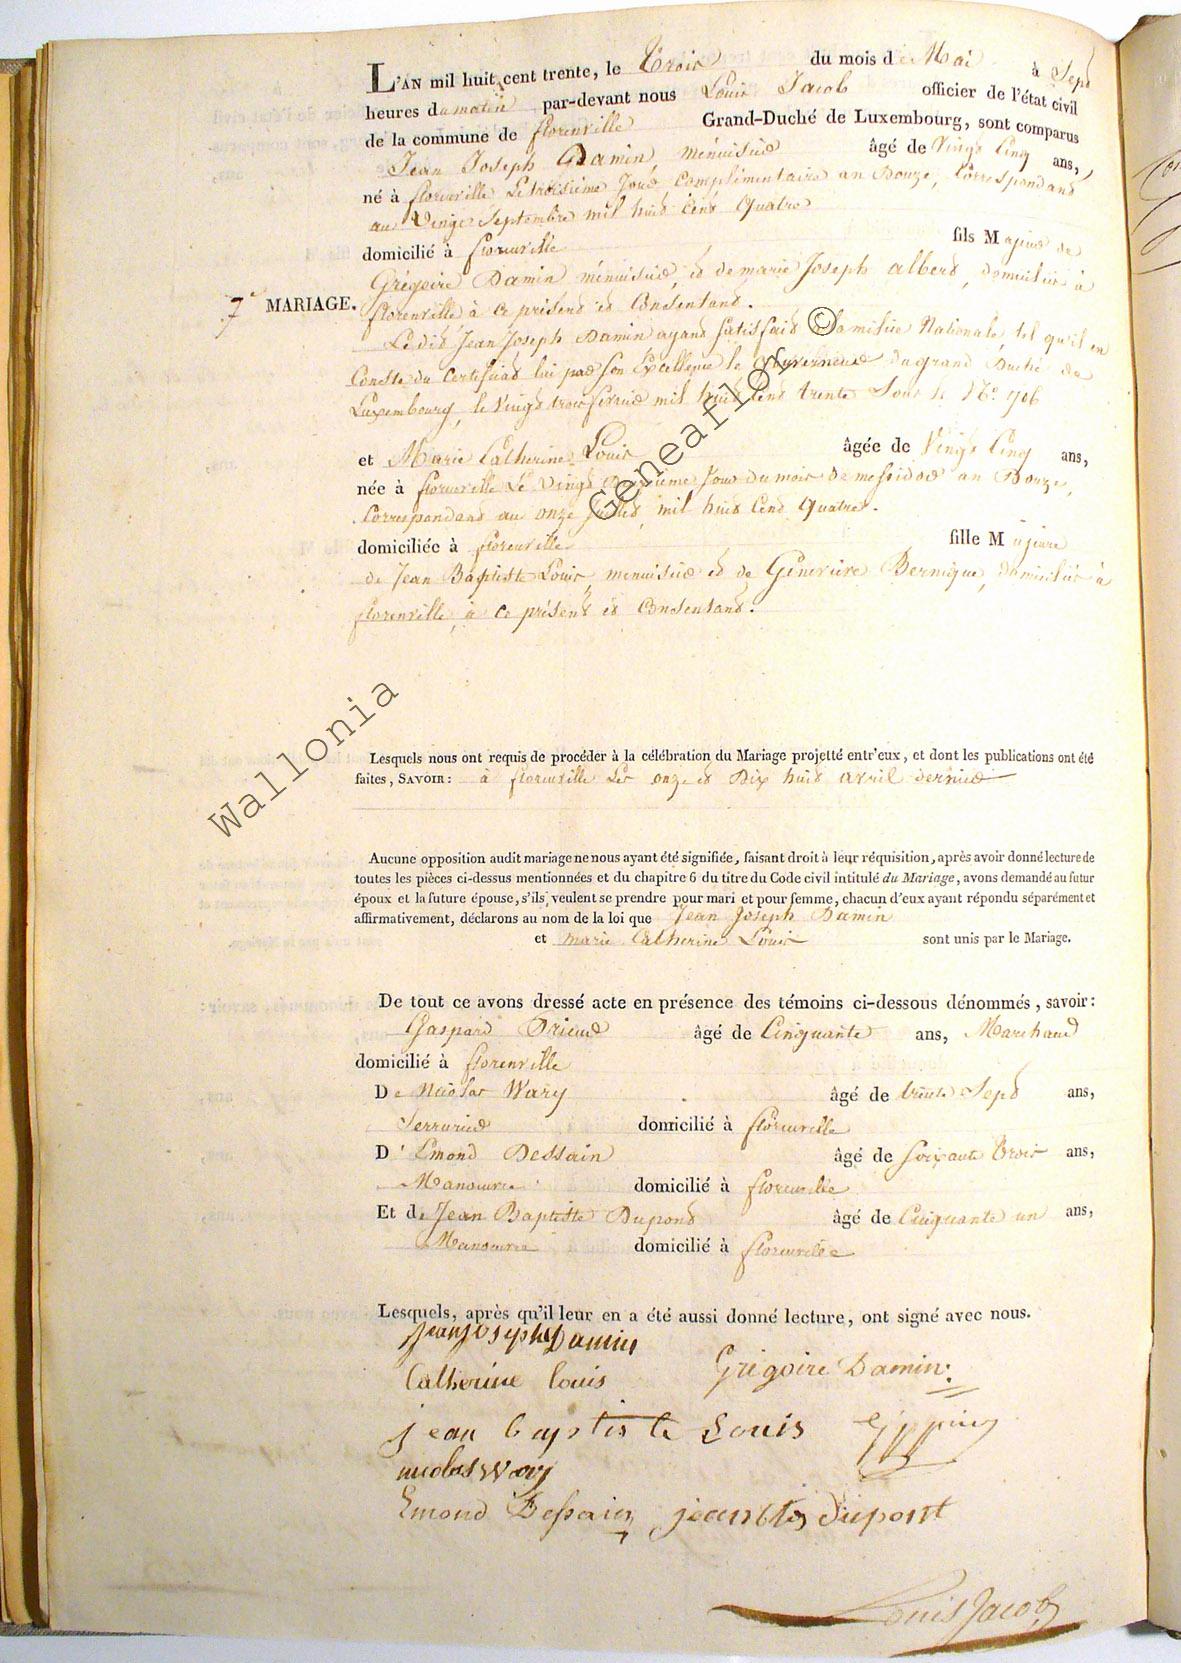 L'AN mil huit cent trente, le Trois du mois de Mai à Sept
heures du matin par-devant nous Louis Jacob officier de l'état civil
de la commune de florenville Grand-Duché de Luxembourg, sont comparus
Jean Joseph Damin, menuisier âgé de Vingt Cinq ans,
né à florenville Le troisième Jour complémentaire an Douze, Correspondant
au Vingt Septembre mil huit Cent Quatre
domicilié à florenville fils Majeur de
Grégoire Damin menuisier, et de marie Joseph albert, domiciliés à
florenville à ce présent et Consentant.
7e MARIAGE.
Ledit Jean Joseph Damin ayant satisfait à la milice Nationale, tel qu'il en
Conste du Certificat lui par Son Excellence le Gouverneur du grand Duché de
Luxembourg, le Vingt trois février mil huit Cent trente Sous le No. 706
et Marie Catherine Louis âgée de Vingt Cinq ans,
née à florenville Le Vingt Deuxième Jour du mois de messidor an Douze,
Correspondant au onze Juillet, mil huit Cent Quatre.
domiciliée à florenville fille Majeure
de Jean Baptiste Louis menuisier et de Géneviève Bernique, domiciliés à
florenville, à ce présent et Consentant.
Lesquels nous ont requis de procéder à la célébration du Mariage projetté entr'eux, et dont les publications ont été
faites, SAVOIR: à florenville Les onze et Dix huit avril dernier
Aucune opposition audit mariage ne nous ayant été signifiée, faisant droit à leur réquisition, après avoir donné lecture de
toutes les pièces ci-dessus mentionnées et du chapitre 6 du titre du Code civil intitulé du Mariage, avons demandé au futur
époux et la future épouse, s'ils veulent se prendre pour mari et pour femme, chacun d'eux ayant répondu séparément et
affirmativement, déclarons au nom de la loi que Jean Joseph Damin
et marie Catherine Louis sont unis par le Mariage.
De tout ce avons dressé acte en présence des témoins ci-dessous dénommés, savoir:
Gaspard âgé de Cinquante ans, Marchand
domicilié à florenville
De Nicolas Wary âgé de trente Sept ans,
Serrurier domicilié à florenville
D' Emond Dessain âgé de soixante Trois ans,
Manoeuvre domicilié à florenville
Et de Jean Baptiste Dupont âgé de Cinquante un ans,
Manoeuvre domicilié à florenville
Lesquels, après qu'il leur en a été aussi donné lecture, ont signé avec nous.
Jean Joseph Damin
Catherine Louis Grégoire Damin
jean baptiste Louis
nicolas Wary
Emond Dessain jean btes dupont
Louis Jacob
Wallonia Geneaflor ©